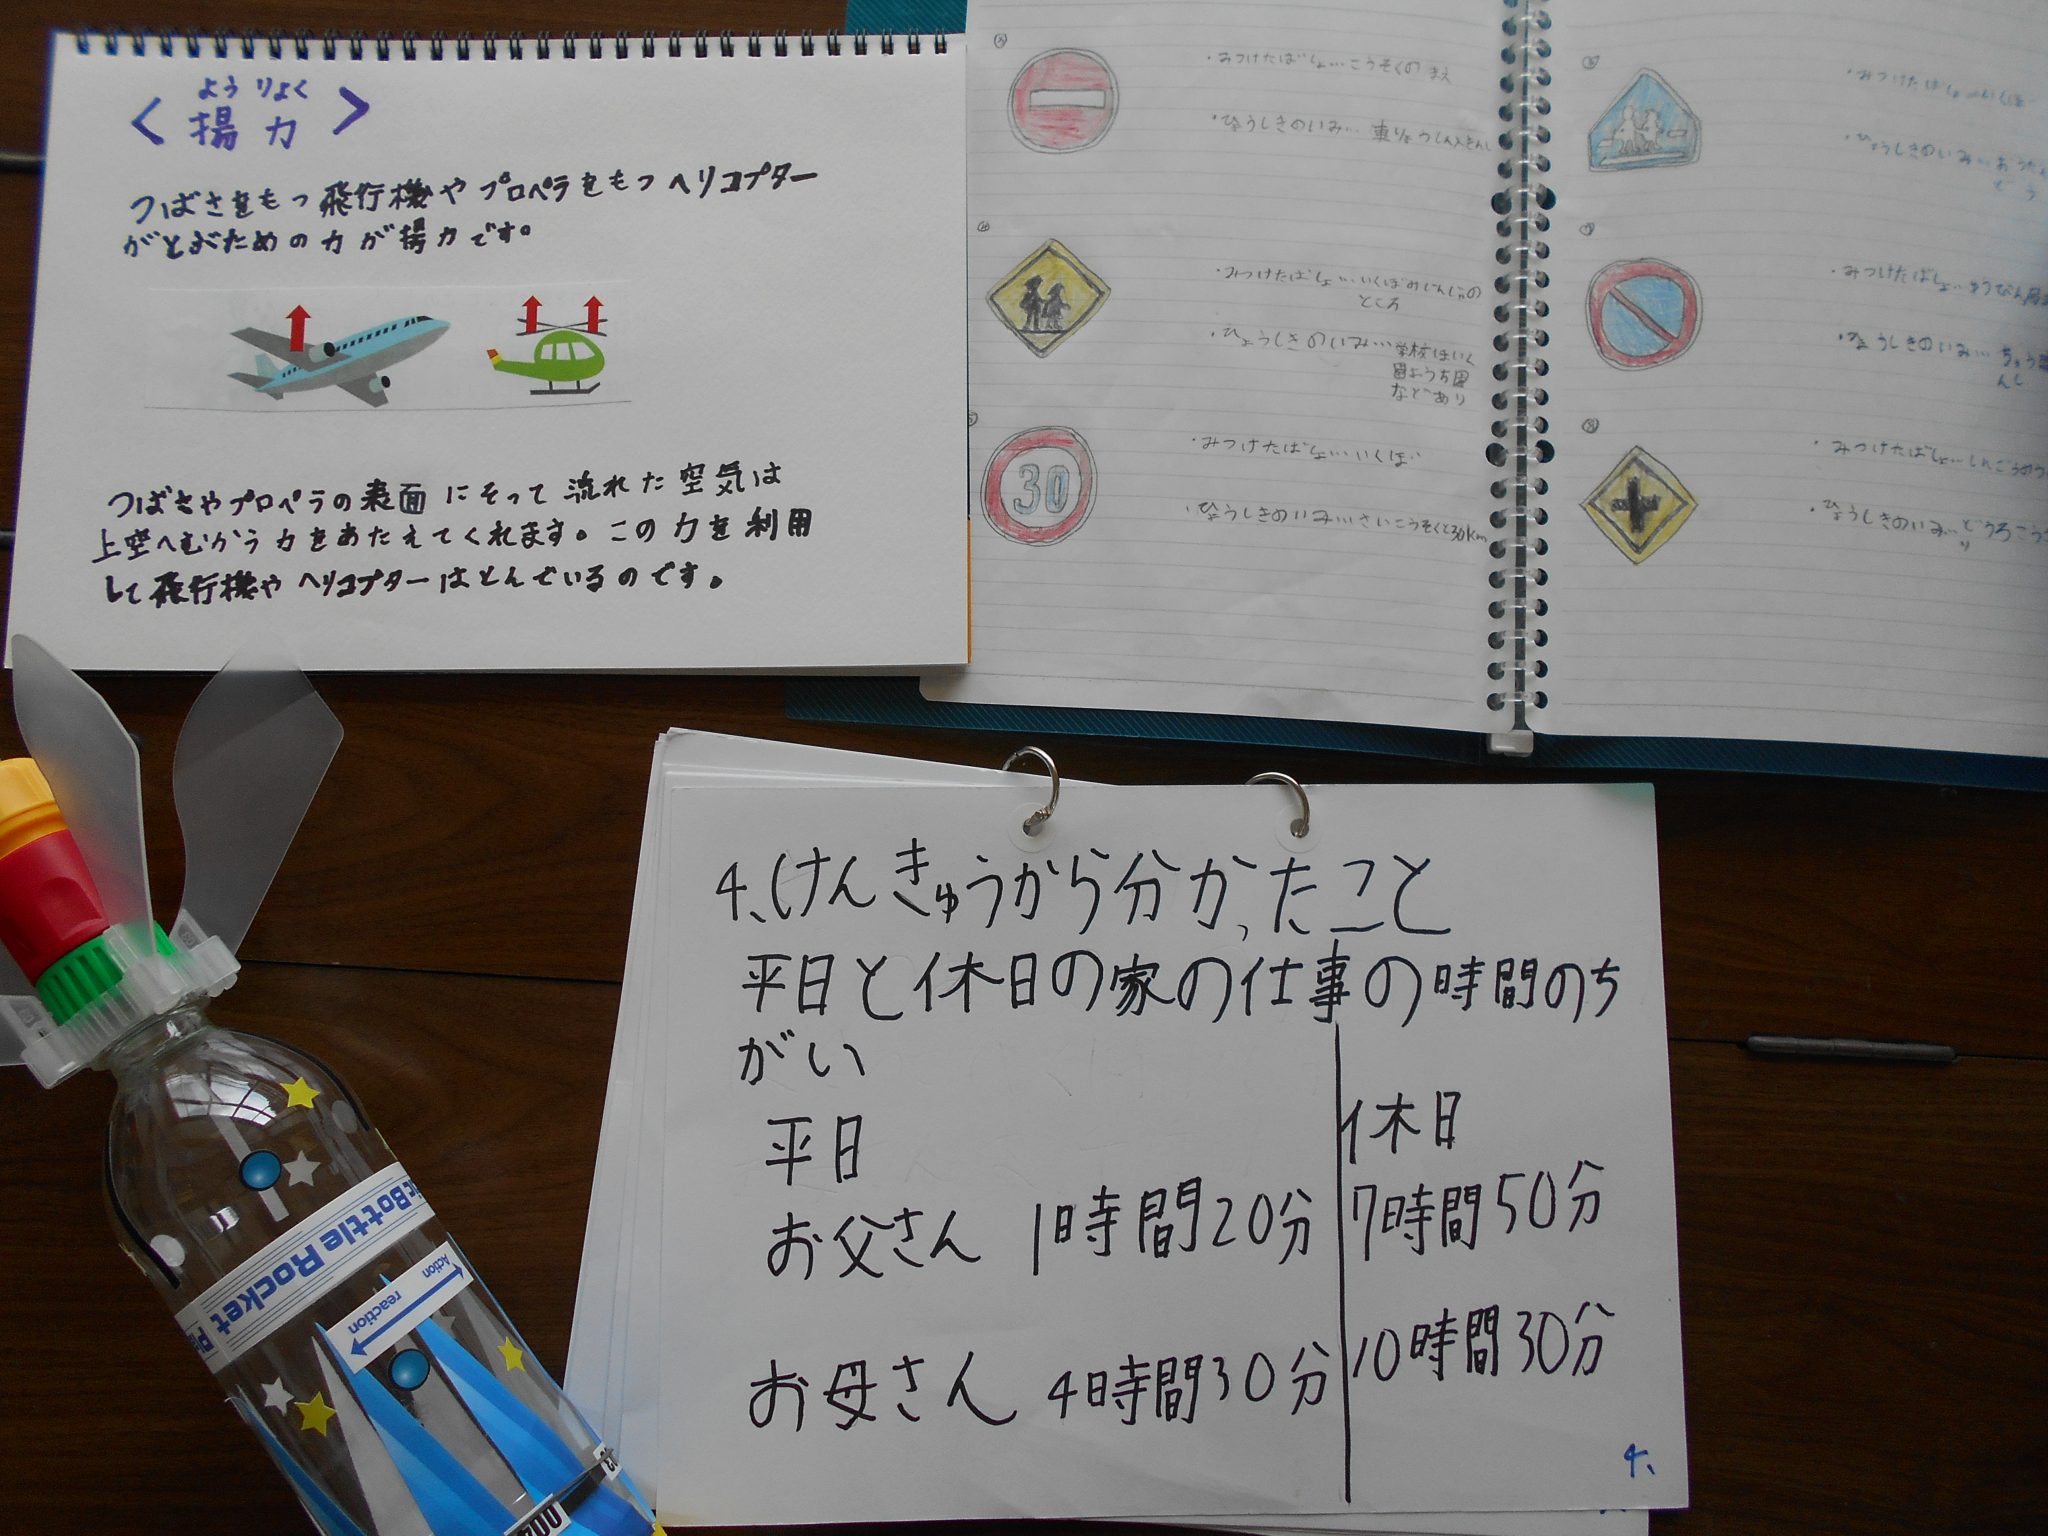 よう りょく
＜揚力＞
つばさをもつ飛行機やプロペラをもつヘリコプター
がとぶための力が揚力です。
つばさやプロペラの表面にそって流れた空気は
上空へむかう力をあたえてくれます。この力を利用
して飛行機やヘリコプターはとんでいるのです。
③
・みつけたばしょ…こうそくのまえ
・ひょうしきのいみ…車りょうしん入きんし
④
・みつけたばしょ…いくぼみじんじゃの
ところ
・ひょうしきのいみ…学校ほいく
園ようち園
などあり
⑤
30
・みつけたばしょ…いくぼ
・ひょうしきのいみ…さいこうそくど30km
・みつけたばしょ…いくぼ
・ひょうしきのいみ…おうだん
⑦
・みつけたばしょ…ゆうびん局
・ひょうしきのいみ…ちゅう車
んし
⑧
・みつけたばしょ…しんごうの
・ひょうしきのいみ…どうろこう
4、けんきゅうから分かったこと
平日と休日の家の仕事の時間のち
がい
平日
休日
お父さん 1時間20分 7時間50分
お母さん 4時間30分 10時間30分
4、
Bottle Rocket
Action
reaction